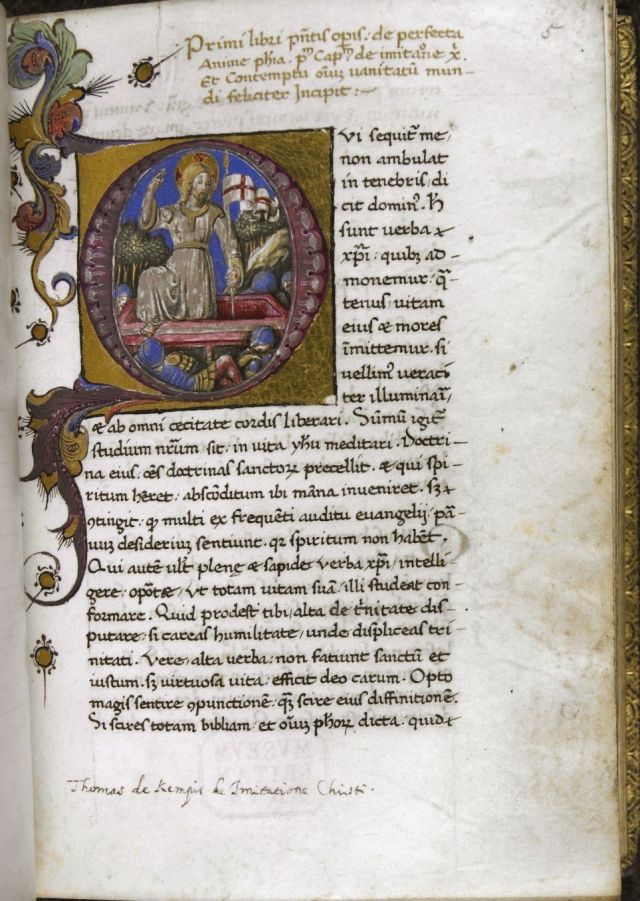 5
Primi libri pñtis opis: de perfecta
Anime phia. pm Capm de imitatoe x.
Et Contemptu oium uanitatū mun-
di feliciter Incipit:~
Vi sequitr me,
non ambulat
in tenebris, di
cit dominꝰ. H
sunt uerba
xpi: quibꝫ ad-
monemur, q̄-
tenus, uitam
eius æ mores
īmittemur, si
uellimꝰ ueraci
ter illuminari,
æ ab omni cecitate cordis liberari. Sūmū igitr
studium nrum sit, in uita yhu meditari. Doctri-
na eius, oēs doctrinas sanctorꝝ precellit. æ qui spi-
ritum heret, abscōditum ibi māna inueniret. Sꝫ
ꝯtingit, qꝫ multi ex frequēti auditu euangelij, pā-
uum desiderium sentiunt, qr spiritum non habēt.
Qui autē ult pleng æ sapide, uerba xpi, intelli-
gere, opotæ, ut totam uitam suā, illi studeat con-
formare. Quid prodest tibi, alta de trnitate dis-
putare, si careas humilitate, unde displiceas tri-
nitati. Vere, alta uerba, non fatiunt sanctū et
iustum, sꝫ uirtuosa uita, efficit deo carum. Opto
magis sentire ꝯpunctionē, qꝫ scire eius diffinitionē.
Si scires totam bibliam, et oium phorꝝ dicta, quid
MVSEVM
BRIT
Thomas de Kempis de Imitatione Christi.